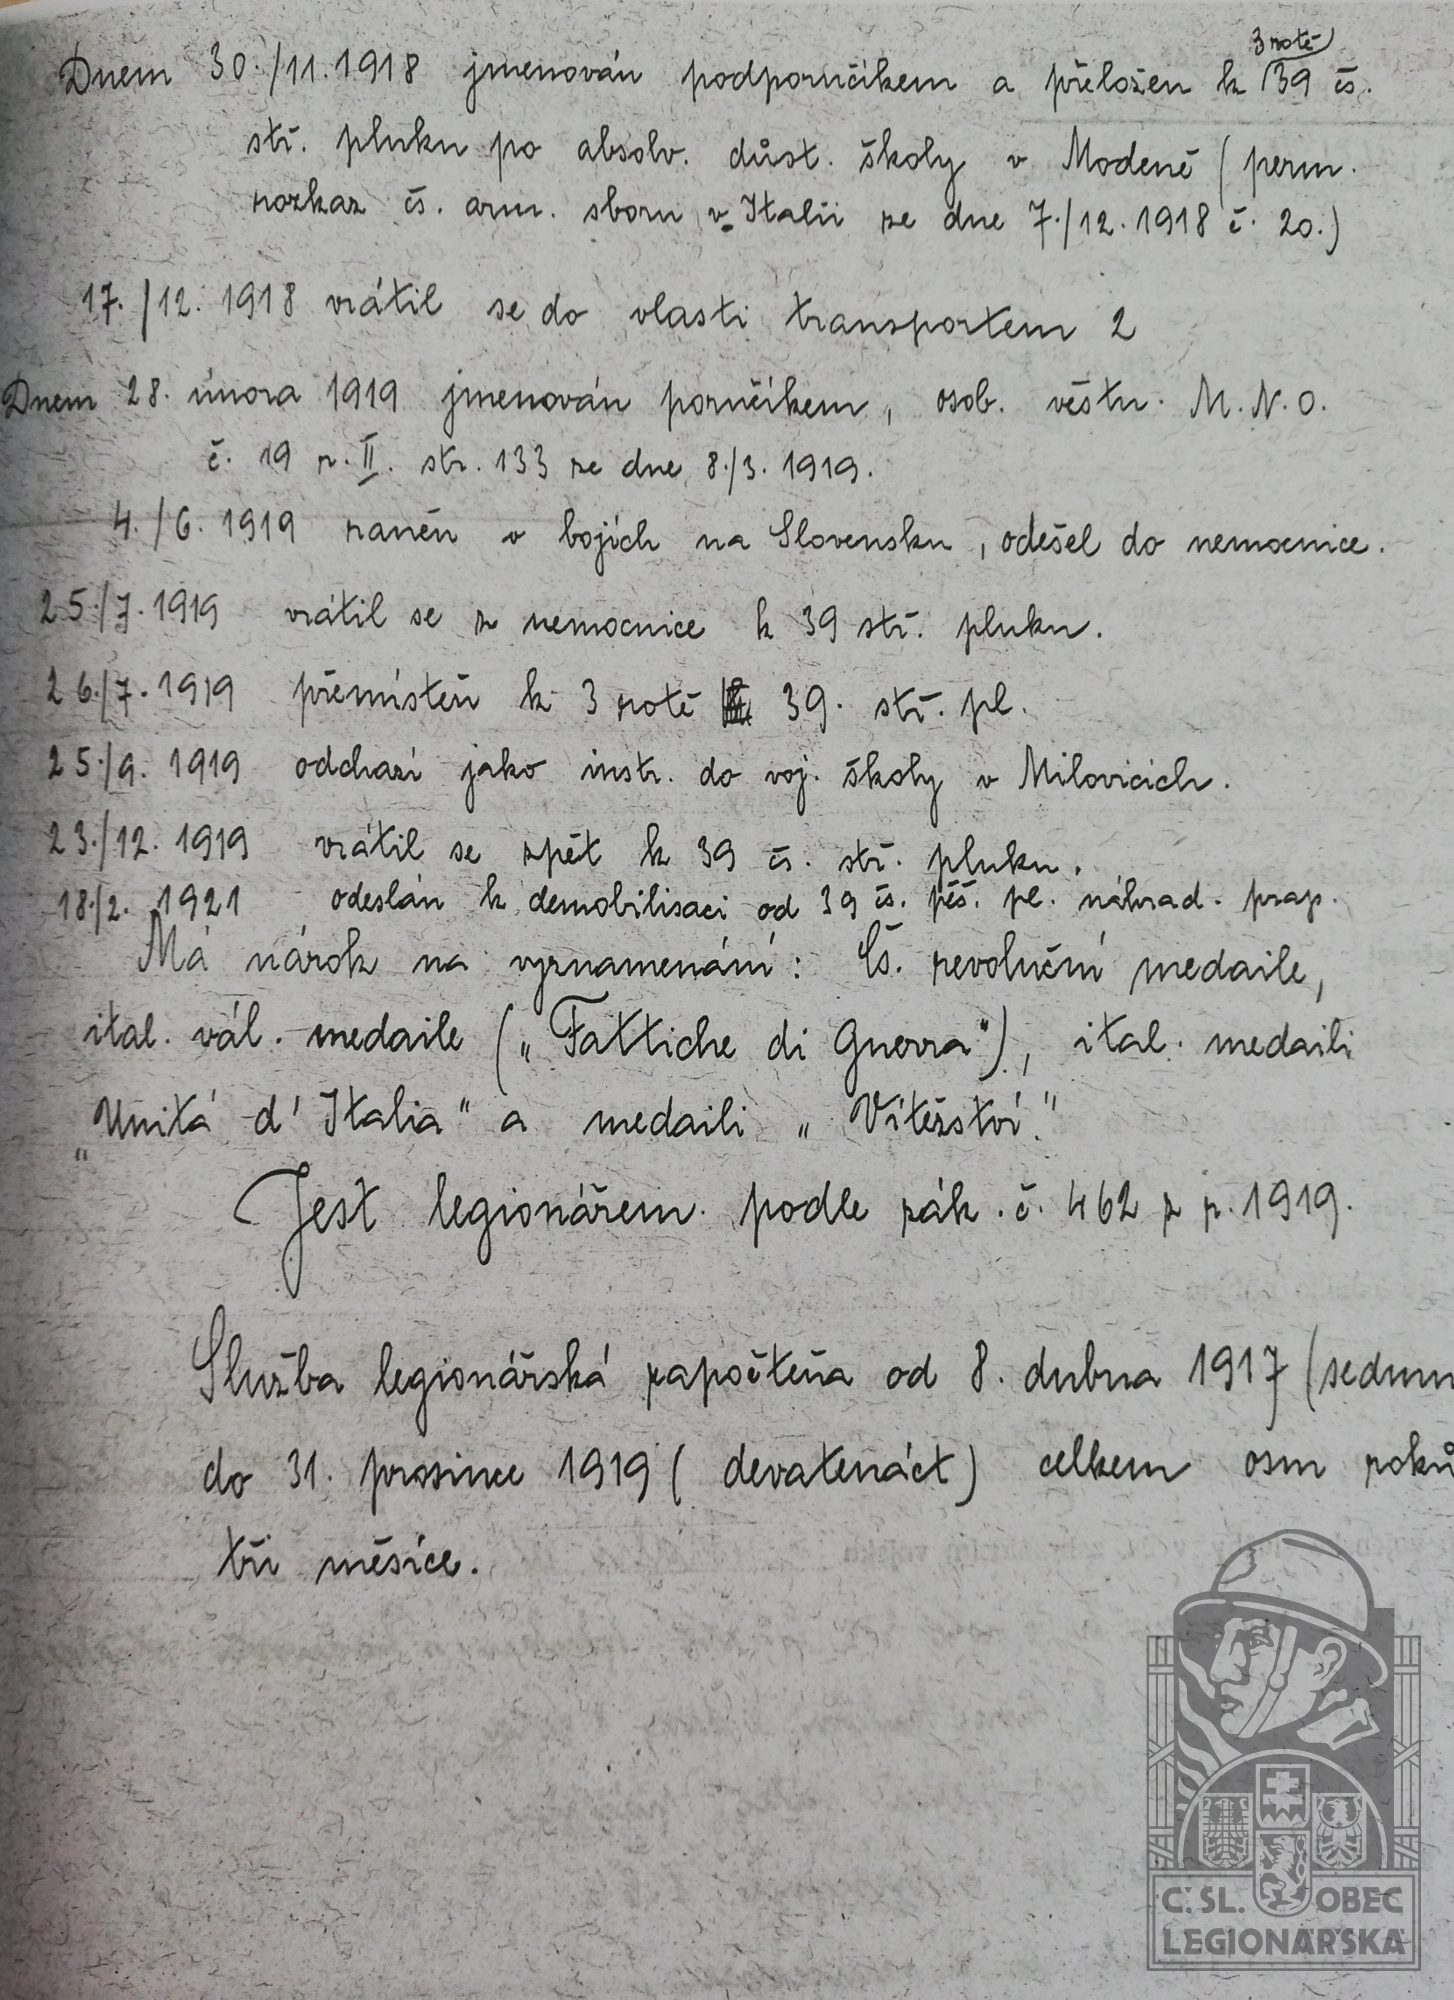 Dnem 30./11.1918 jmenován podporučíkem a přeložen k 3 rotě 39 čs.
stř. pluku po absolv. důst. školy v Modeně (perm.
rozkaz čs. arm. sboru v Italii ze dne 7./12.1918 č. 20.)
17./12. 1918 vrátil se do vlasti transportem 2
Dnem 28. února 1919 jmenován poručíkem, osob. věstn. M.N.O.
č. 19 r. II. str. 133 ze dne 8./3. 1919.
4./6. 1919 raněn v bojích na Slovensku, odešel do nemocnice.
25./7. 1919 vrátil se z nemocnice k 39 stř. pluku.
26./7. 1919 přemístěn k 3 rotě 39. stř. pl.
25./9. 1919 odchází jako instr. do voj. školy v Milovicích.
23./12. 1919 vrátil se zpět k 39 čs. stř. pluku.
18./2. 1921 odeslán k demobilisaci od 39 čs. pěš. pl. náhrad. prap.
Má nárok na vyznamenání: Čs. revoluční medaile,
ital. vál. medaile („Fattiche di Guerra"), ital. medaili
„Unitá d' Italia" a medaili „Vítězství."
Jest legionářem podle zák. č. 462 z r. 1919.
Služba legionářská započtena od 8. dubna 1917 (sedmn
do 31. prosince 1919 (devatenáct) celkem osm roků
tři měsíce.
Č. SL. OBEC
LEGIONÁŘSKÁ